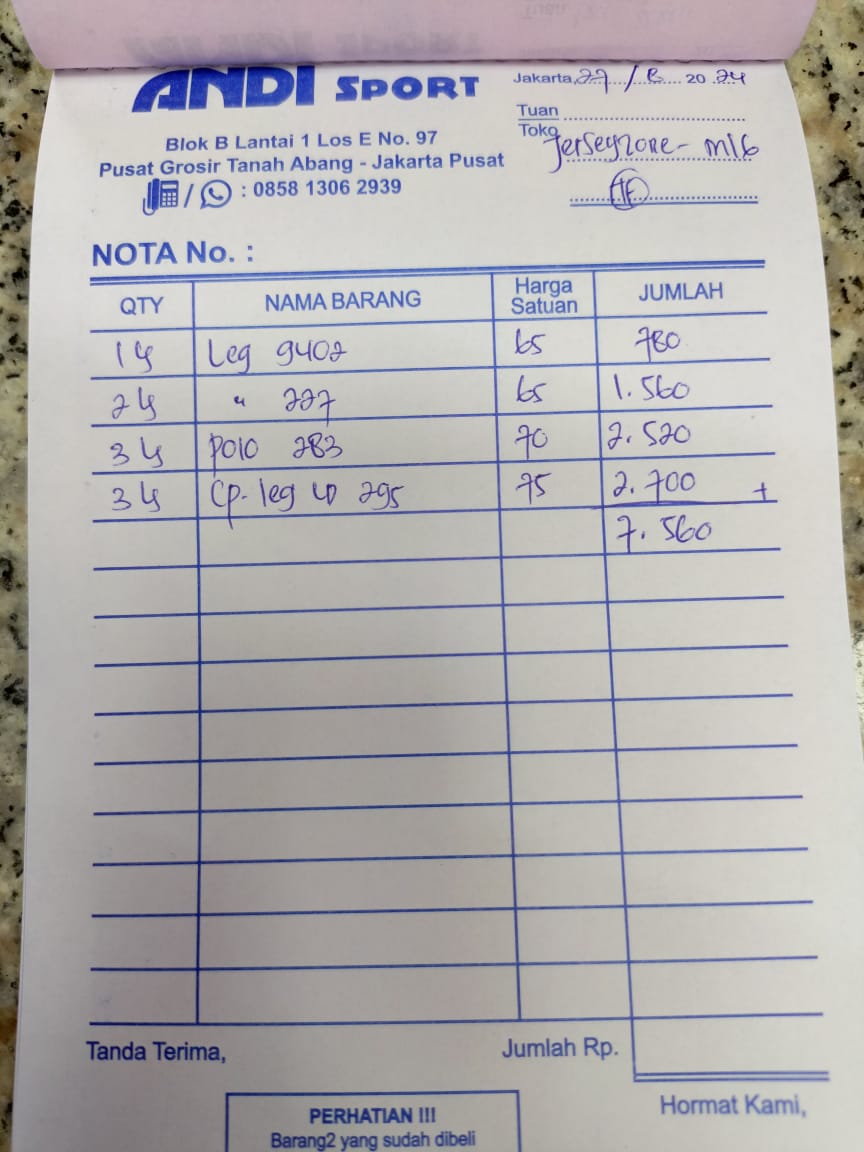 ANDI SPORT
Blok B Lantai 1 Los E No. 97
Pusat Grosir Tanah Abang - Jakarta Pusat
/ : 0858 1306 2939
Jakarta, 27 / 8 20 24
Tuan
Toko Jerseyzone - m16
NOTA No. :
QTY NAMA BARANG Harga Satuan JUMLAH
1 Ls Leg 9402 65 780
2 Ls " 227 65 1.560
3 Ls polo 283 70 2.520
3 Ls Cp. leg 295 75 2.700 +
7.560
Tanda Terima,
Jumlah Rp.
Hormat Kami,
PERHATIAN !!!
Barang2 yang sudah dibeli